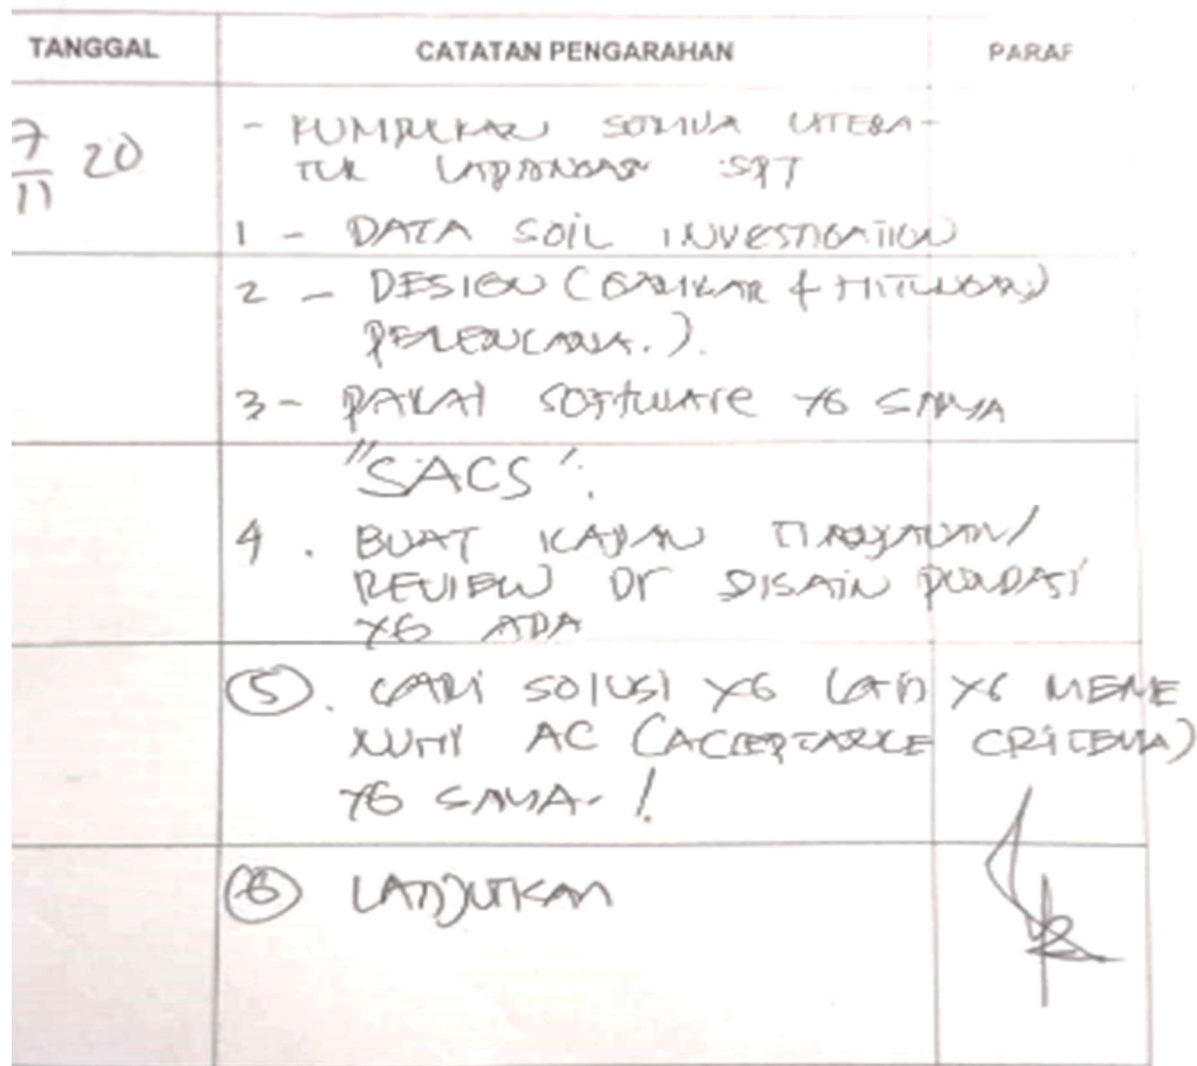 TANGGAL CATATAN PENGARAHAN PARAF
7/11 20
- KUMPULKAN SEMUA LITERA-
TUR LAPANGAN SPT
1 - DATA SOIL INVESTIGATION
2 - DESIGN (GAMBAR & HITUNGAN)
PERENCANA.).
3 - PAKAI SOFTWARE YG SAMA
"SACS".
4 . BUAT KAJIAN TINJAUAN/
REVIEW DR DISAIN PONDASI
YG ADA
5 . CARI SOLUSI YG LAIN YG MEME
NUHI AC (ACCEPTANCE CRITERIA)
YG SAMA. !
6 LANJUTKAN